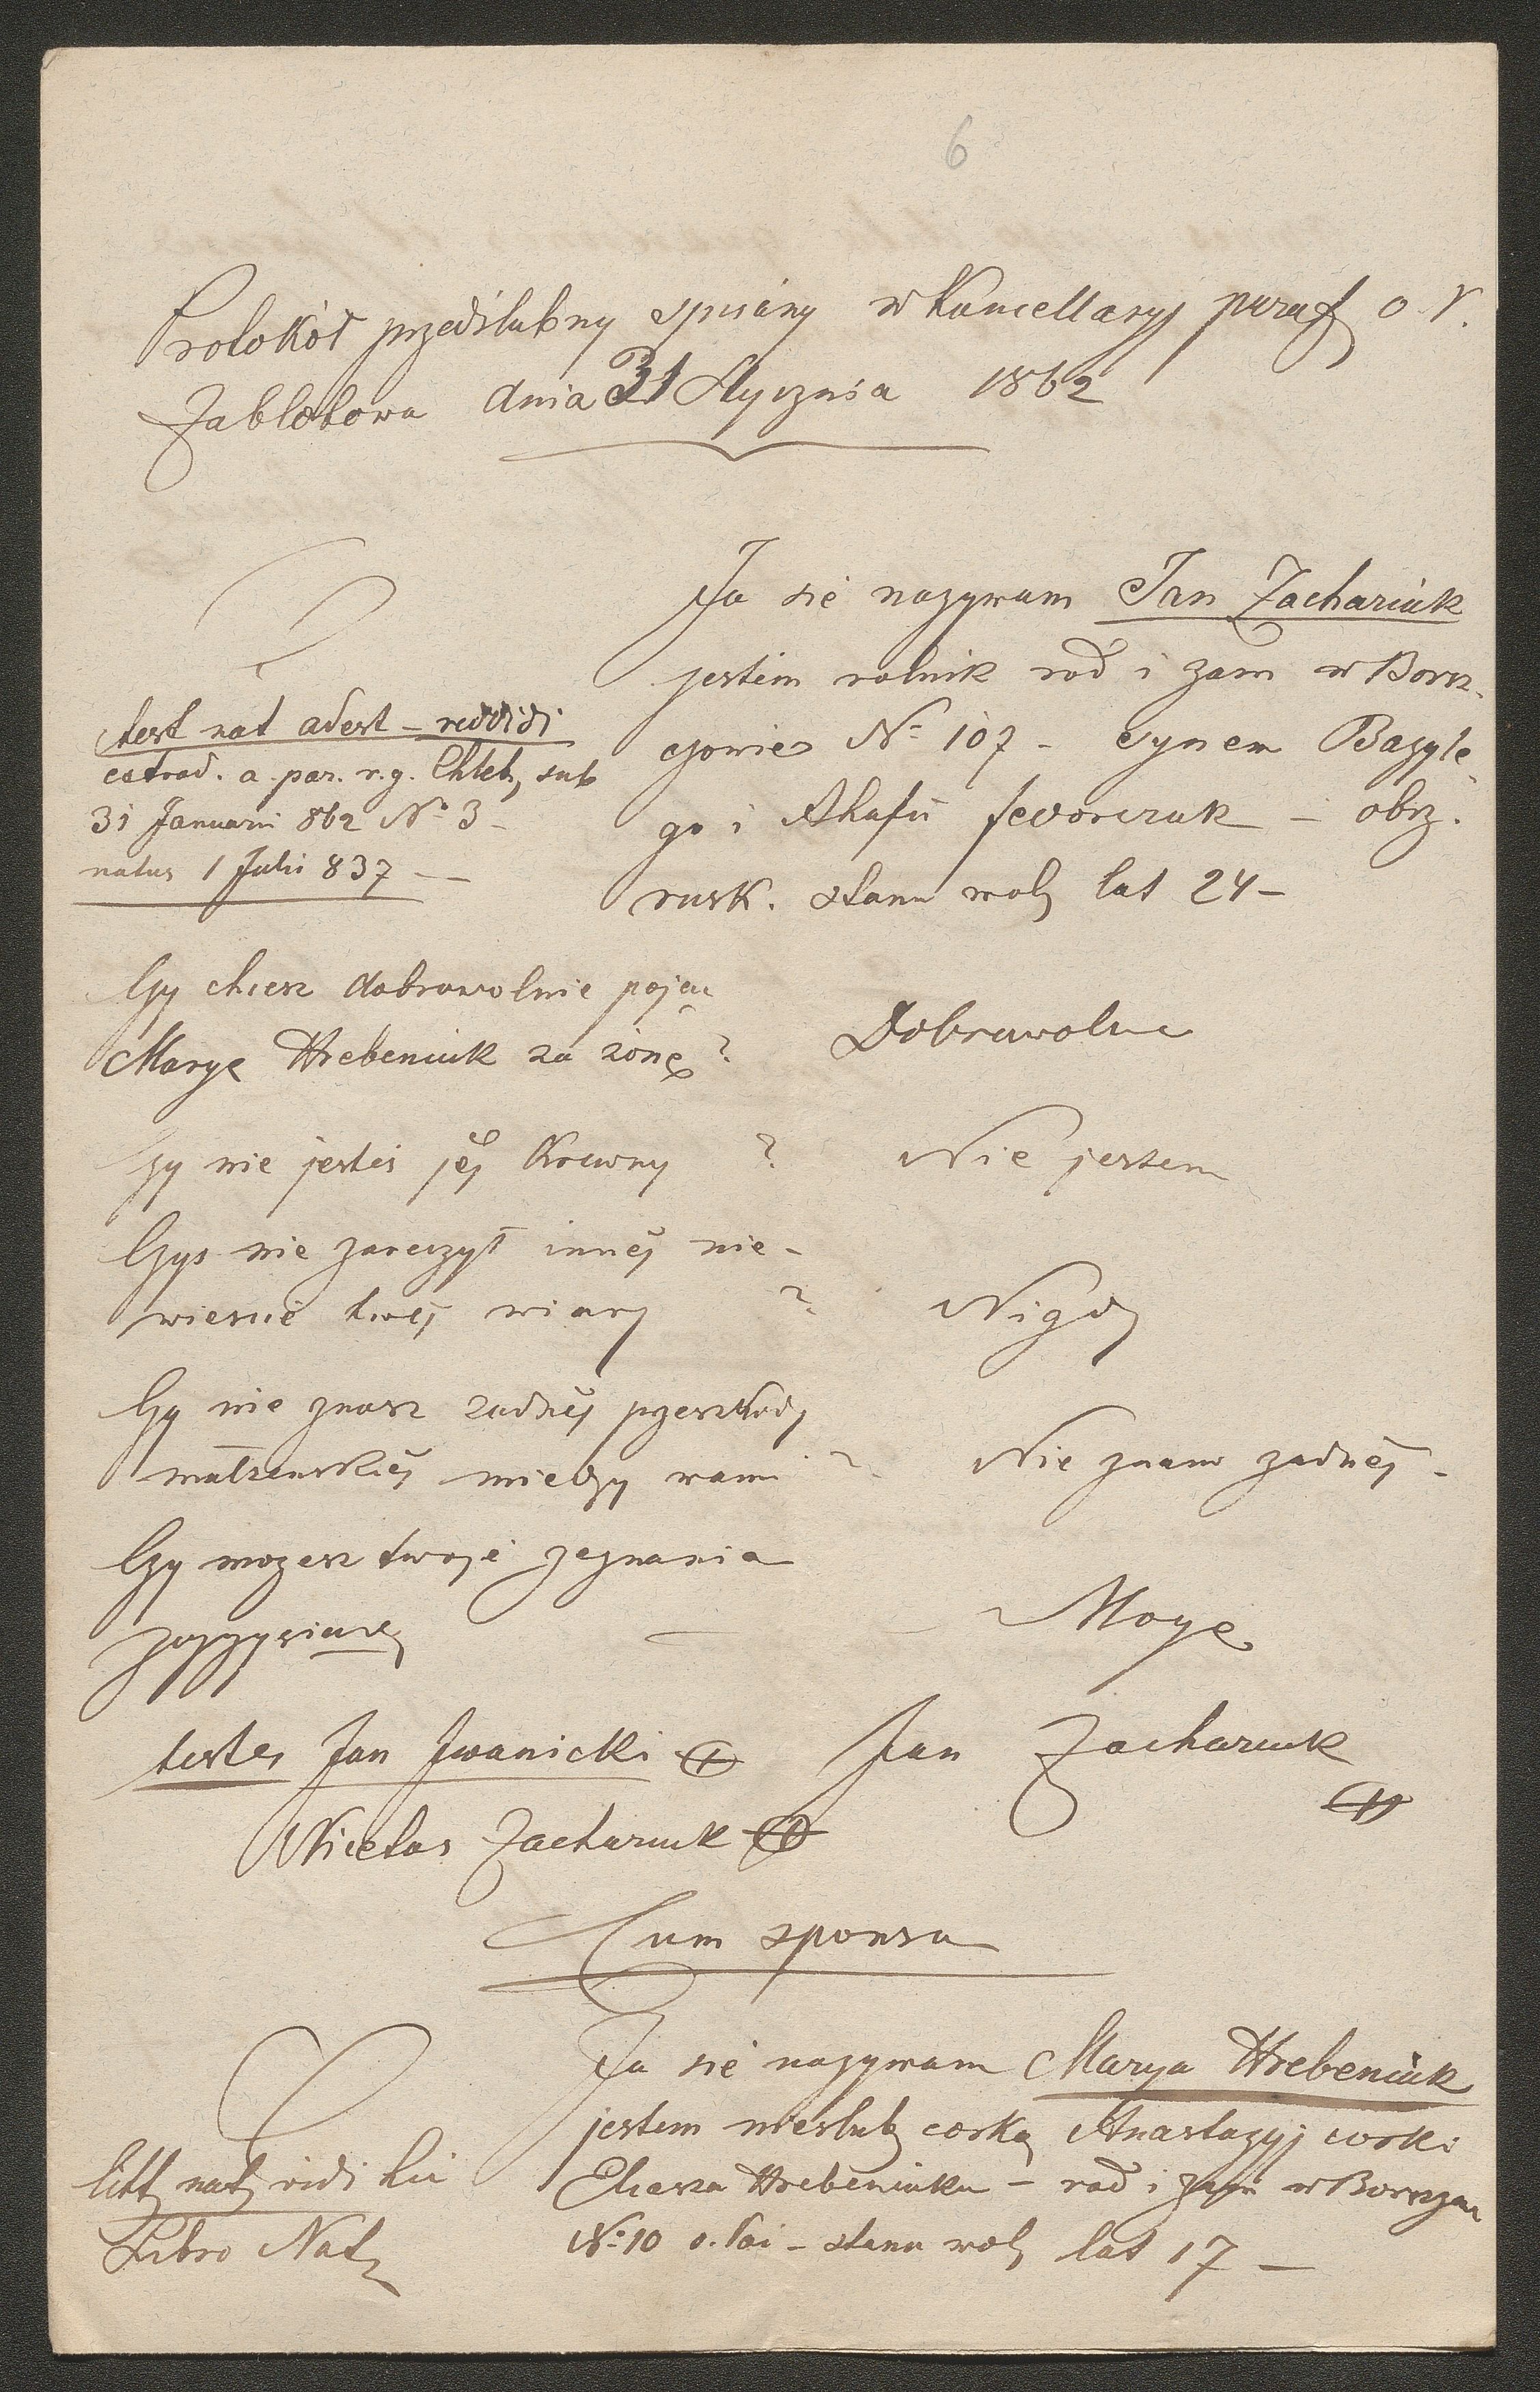 6
Protokół przedślubny spisany w Kancellaryj paraf o. r.
Jabłotowa dnia 31 Stycznia 1862
Ja się nazywam Jan Zachariuk
jestem rolnik rod i zam w Borsz-
czowie No 107 - synem Bazyle-
go i Ahafii Fedorczuk - obrz.
rusk. stanu woln lat 24 -
test nat adest - reddidi
extrad. a par. r. g. Chleb, sub
31 Januarii 862 No 3 -
natus 1 Julii 837 -
Czy chcesz dobrowolnie pojąć
Maryę Hrebeniuk za żonę ?
Dobrowolnie
Czy nie jesteś jéj Krewny ?
Nie jestem
Czyś nie zaręczył innéj nie-
wieście twéj wiary ?
Nigdy
Czy nie znasz żadnéj przeszkody
małżeńskiéj między wami ?
Nie znam żadnéj -
Czy możesz twoje zeznania
zaprzysiądz
Mogę
testes Jan Iwanicki +
Jan Zachariuk
+
Nicetas Zachariuk +
Cum sponsa
Ja się nazywam Marya Hrebeniuk
jestem nieślub córką Anastazyj córki
Eliasza Hrebeniuka - rod i zam w Borszczow
No 10 - stanu woln lat 17 -
nat vidi
Libro Nat